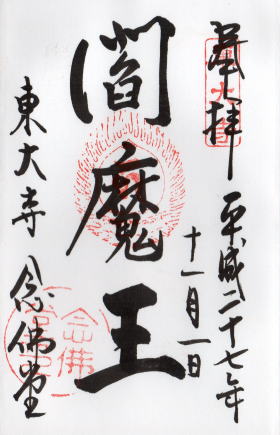 奉拝
平成二十七年
十一月一日
閻魔王
東大寺 念佛堂